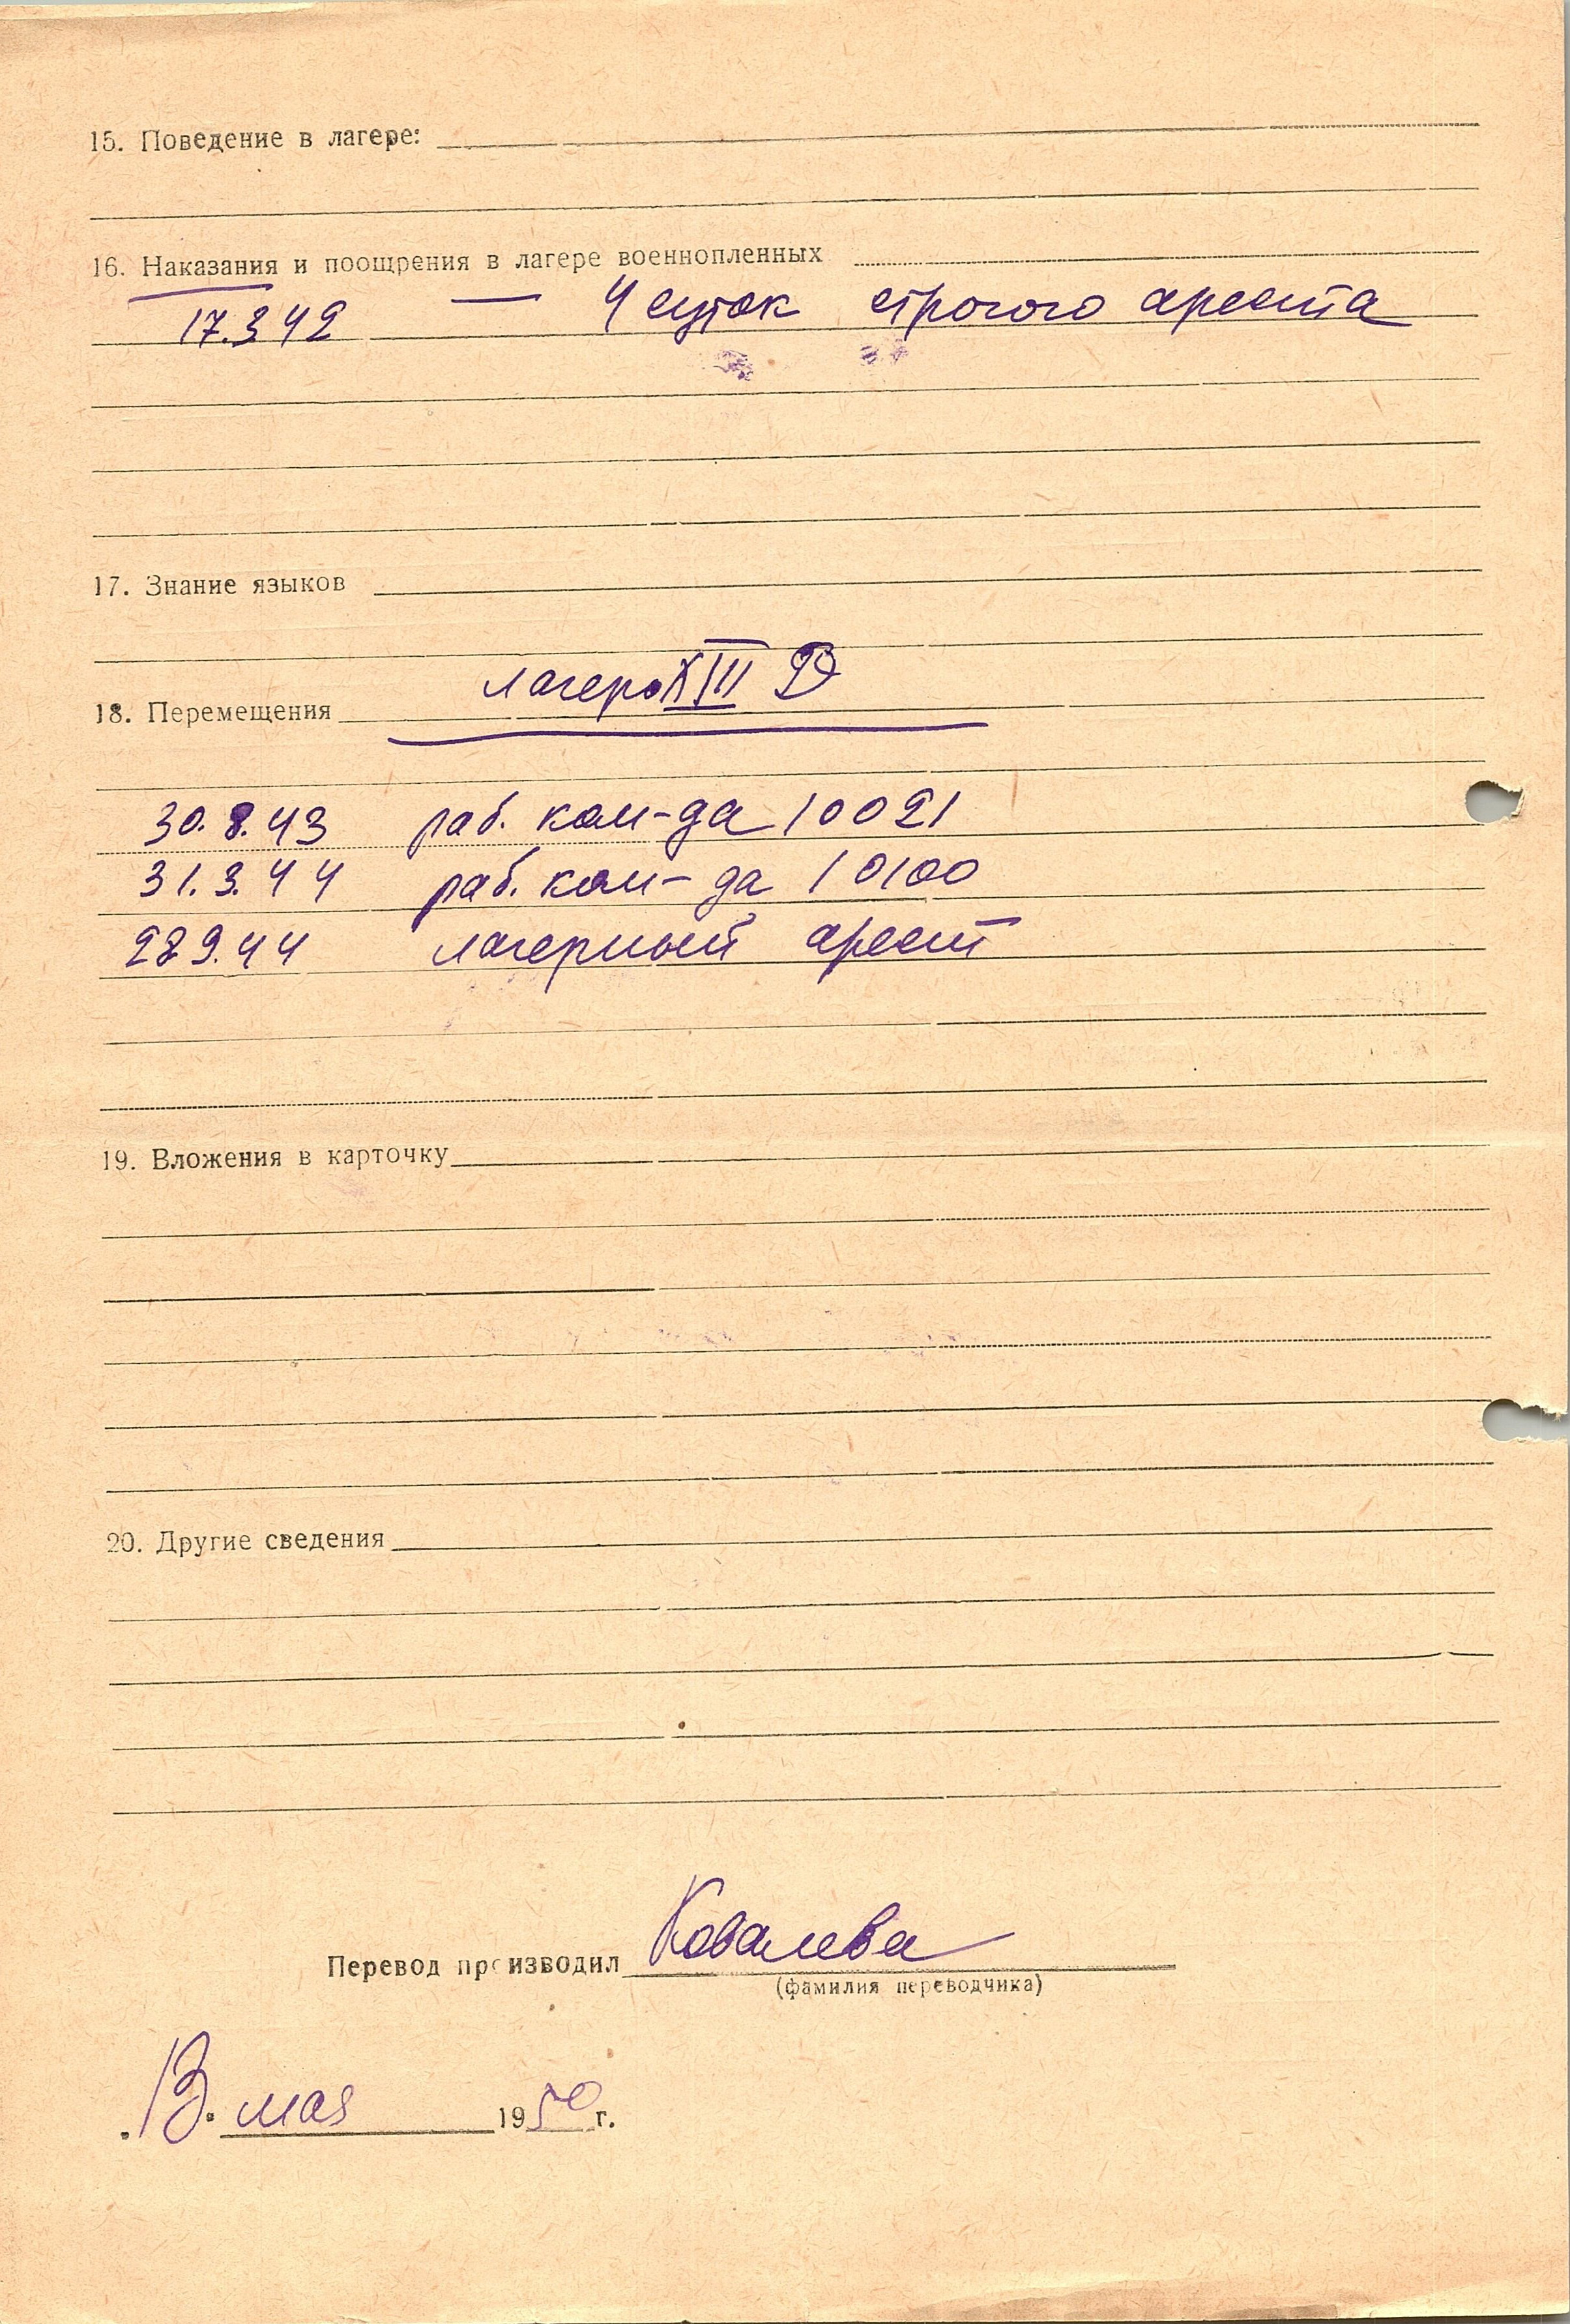 15. Поведение в лагере:
16. Наказания и поощрения в лагере военнопленных
17.3.42 — 4 суток строгого ареста
17. Знание языков
18. Перемещения лагерь XIII D
30.8.43 раб. ком-да 10021
31.3.44 раб. ком-да 10100
28.9.44 лагерный арест
19. Вложения в карточку
20. Другие сведения
Перевод производил Ковалева
(фамилия переводчика)
13. мая 1950 г.